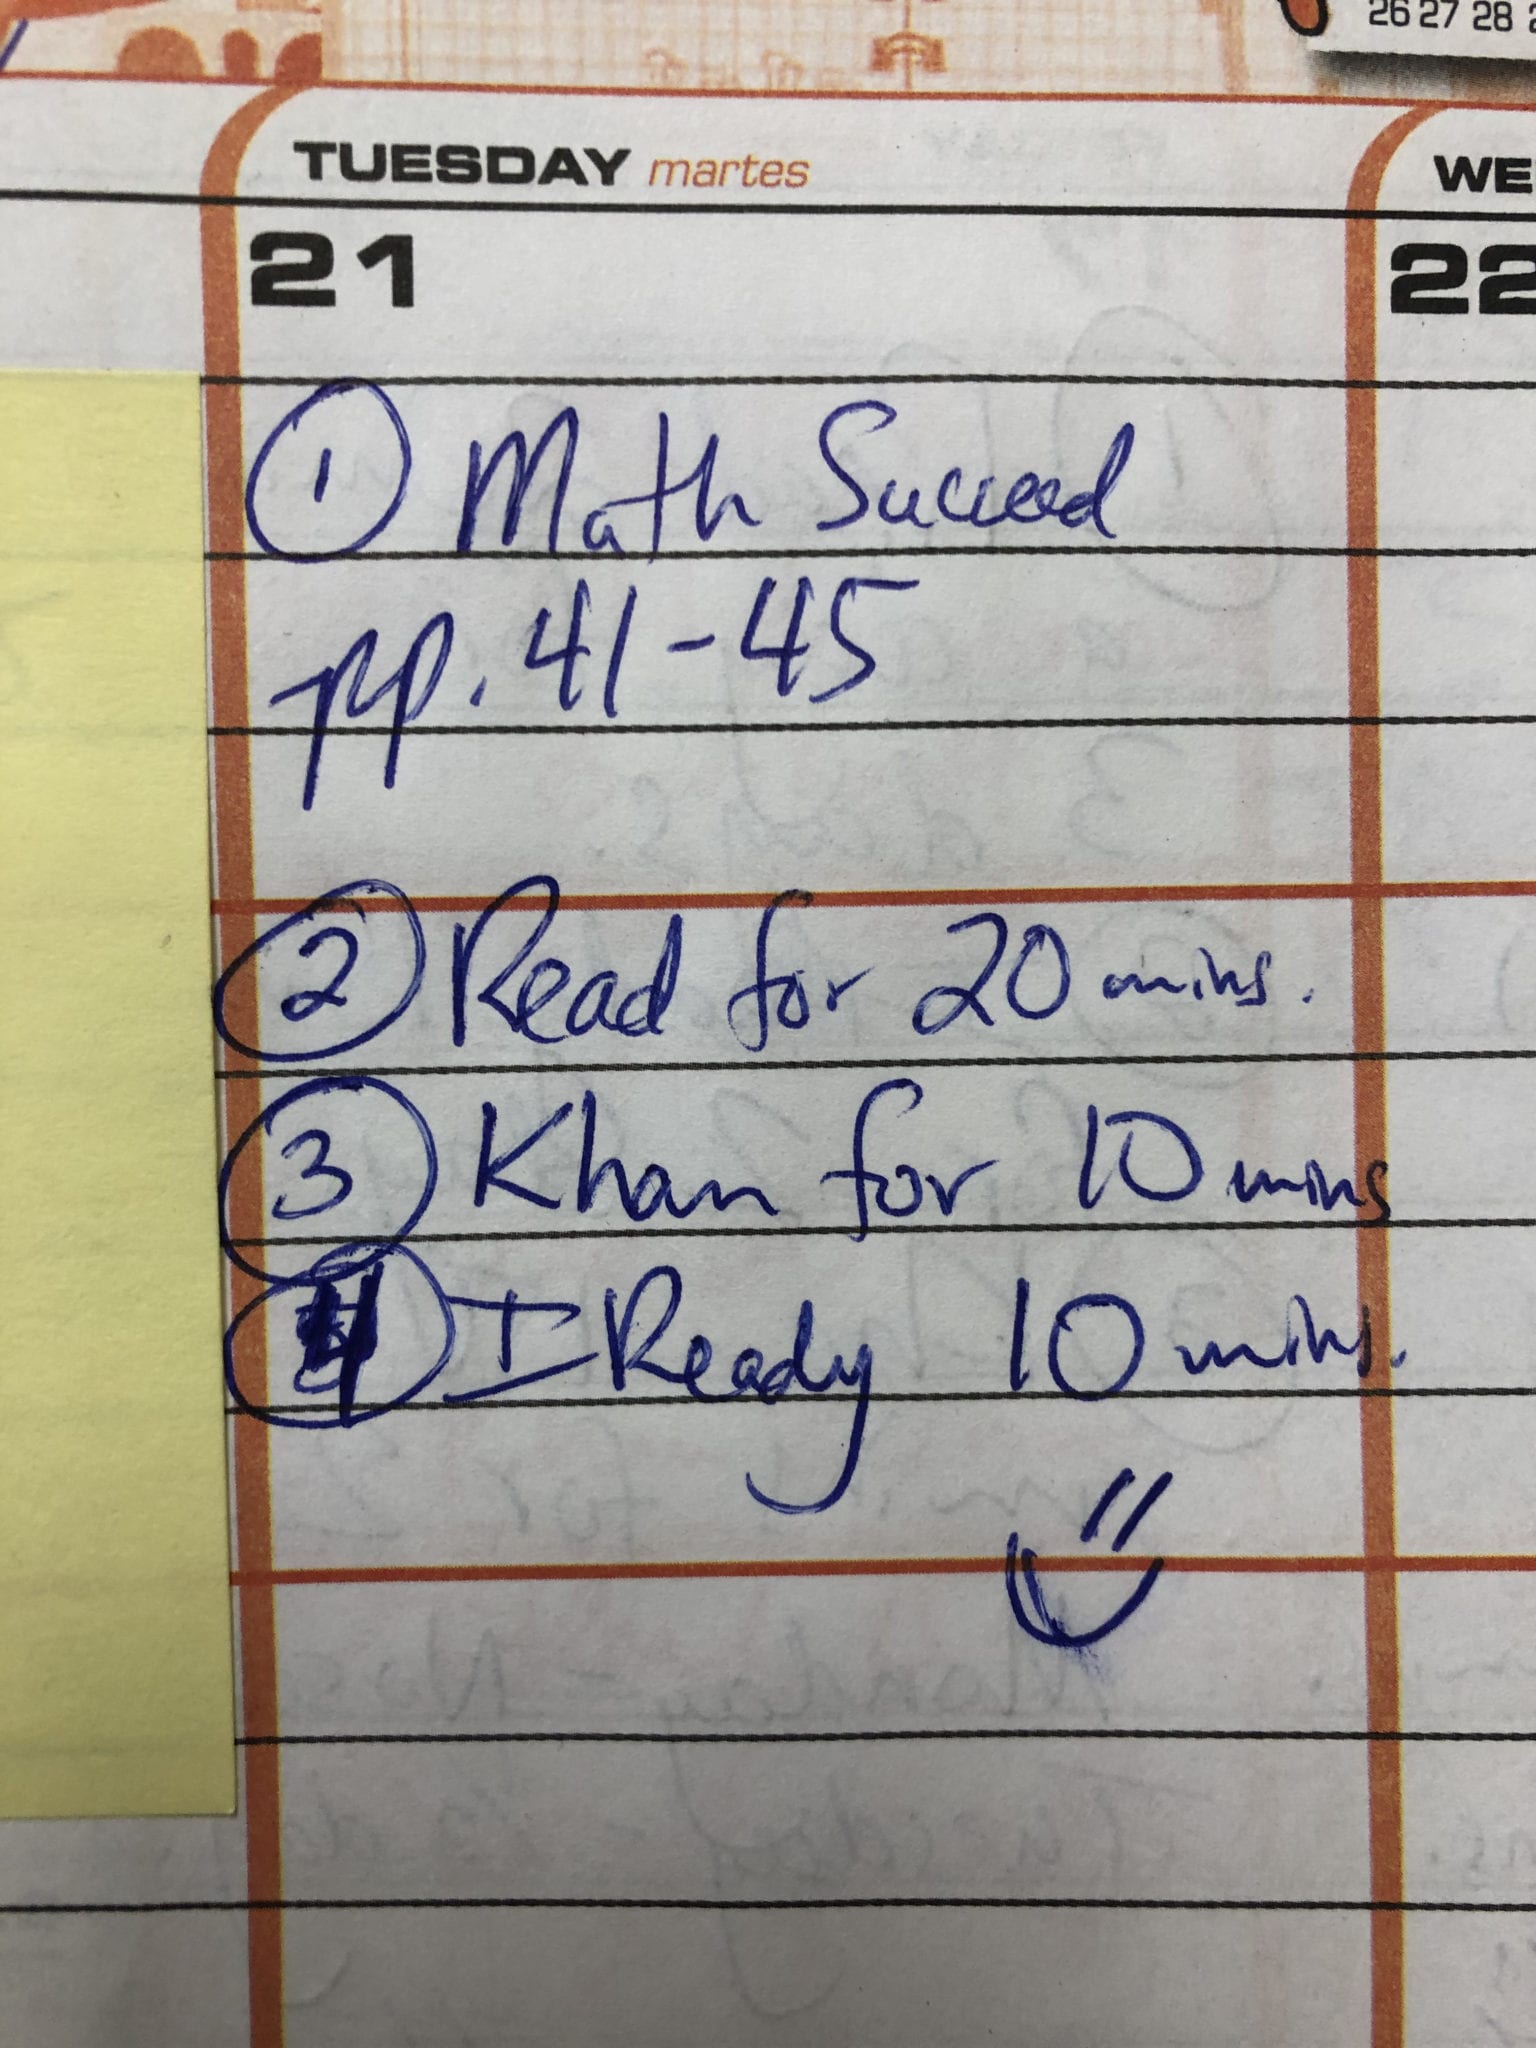 26 27 28
TUESDAY martes
WE
21
22
① Math Succeed
pp. 41-45
② Read for 20 mins.
③ Khan for 10 mins
④ I Ready 10 mins.